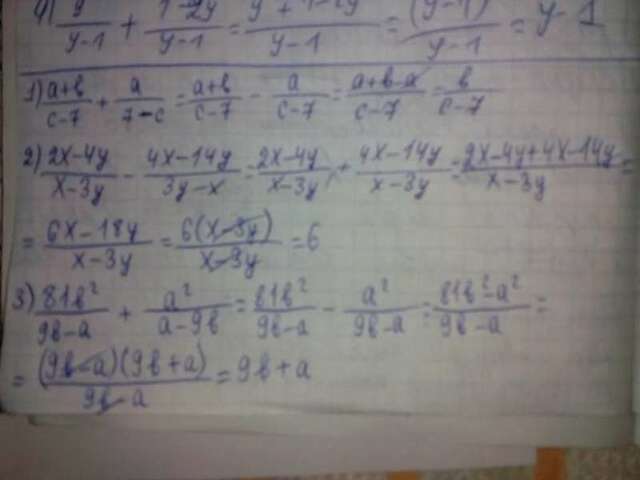 4) y/(y-1) + (1-2y)/(y-1) = (y²+1-2y)/(y-1) = (y-1)²/(y-1) = y-1
1) (a+b)/(c-7) + a/(7-c) = (a+b)/(c-7) - a/(c-7) = (a+b-a)/(c-7) = b/(c-7)
2) (2x-4y)/(x-3y) - (4x-14y)/(3y-x) = (2x-4y)/(x-3y) + (4x-14y)/(x-3y) = (2x-4y+4x-14y)/(x-3y) =
= (6x-18y)/(x-3y) = 6(x-3y)/(x-3y) = 6
3) 81b²/(9b-a) + a²/(a-9b) = 81b²/(9b-a) - a²/(9b-a) = (81b²-a²)/(9b-a) =
= (9b-a)(9b+a)/(9b-a) = 9b+a